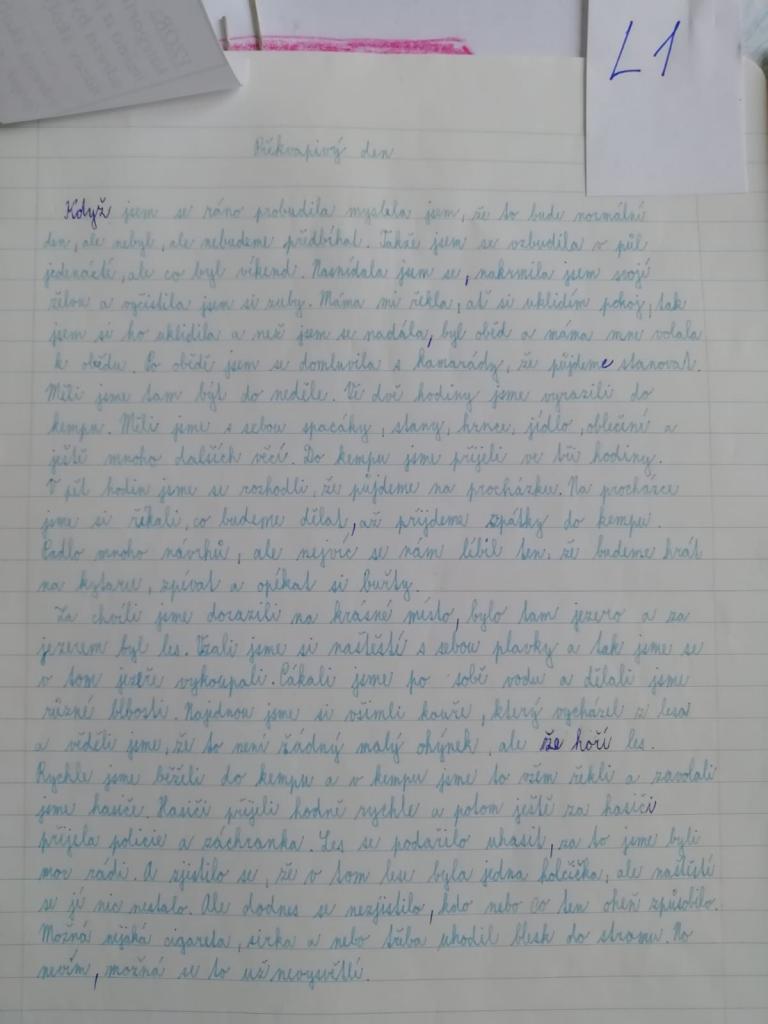 L1
Překvapivý den
Když jsem se ráno probudila myslela jsem, že to bude normální
den, ale nebyl, ale nebudeme předbíhat. Takže jsem se vzbudila v půl
jedenácté, ale co byl víkend. Nasnídala jsem se, nakrmila jsem svojí
želvu a vyčistila jsem si zuby. Máma mi řekla, ať si uklidím pokoj, tak
jsem si ho uklidila a než jsem se nadála, byl oběd a máma mne volala
k obědu. Po obědě jsem se domluvila s kamarády, že půjdeme stanovat.
Měli jsme tam být do neděle. Ve dvě hodiny jsme vyrazili do
kempu. Měli jsme s sebou spacáky, stany, hrnce, jídlo, oblečení a
ještě mnoho dalších věcí. Do kempu jsme přijeli ve tři hodiny.
V pět hodin jsme se rozhodli, že půjdeme na procházku. Na procházce
jsme si říkali, co budeme dělat, až přijdeme zpátky do kempu.
Padlo mnoho návrhů, ale nejvíc se nám líbil ten, že budeme hrát
na kytaru, zpívat a opékat si buřty.
Za chvíli jsme dorazili na krásné místo, bylo tam jezero a za
jezerem byl les. Vzali jsme si naštěstí s sebou plavky a tak jsme se
v tom jezeře vykoupali. Cákali jsme po sobě vodu a dělali jsme
různé blbosti. Najdnou jsme si všimli kouře, který vycházel z lesa
a věděli jsme, že to není žádný malý ohýnek, ale že hoří les.
Rychle jsme běželi do kempu a v kempu jsme to všem řekli a zavolali
jsme hasiče. Hasiči přijeli hodně rychle a potom ještě za hasiči
přijela policie a záchranka. Les se podařilo uhasit, za to jsme byli
moc rádi. A zjistilo se, že v tom lese byla jedna holčička, ale naštěstí
se jí nic nestalo. Ale dodnes se nezjistilo, kdo nebo co ten oheň způsobilo.
Možná nějaká cigareta, sirka a nebo třeba uhodil blesk do stromu. No
nevím, možná se to už nevysvětlí.